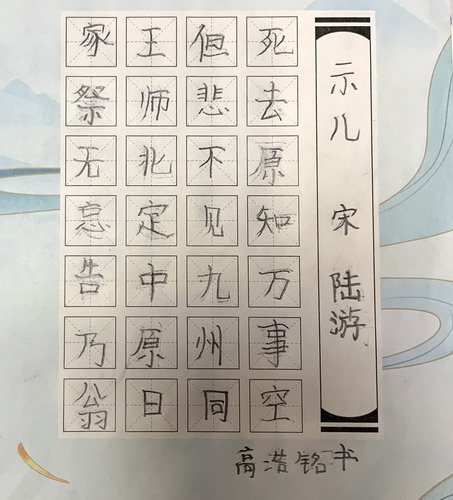 示儿 宋 陆游
死去原知万事空
但悲不见九州同
王师北定中原日
家祭无忘告乃翁
高浩铭书